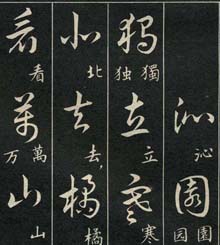 沁 沁 園 園 园
獨 獨 独 立 立 寒 寒
北 北 去 去, 橘 橘
看 看 萬 萬 万 山 山